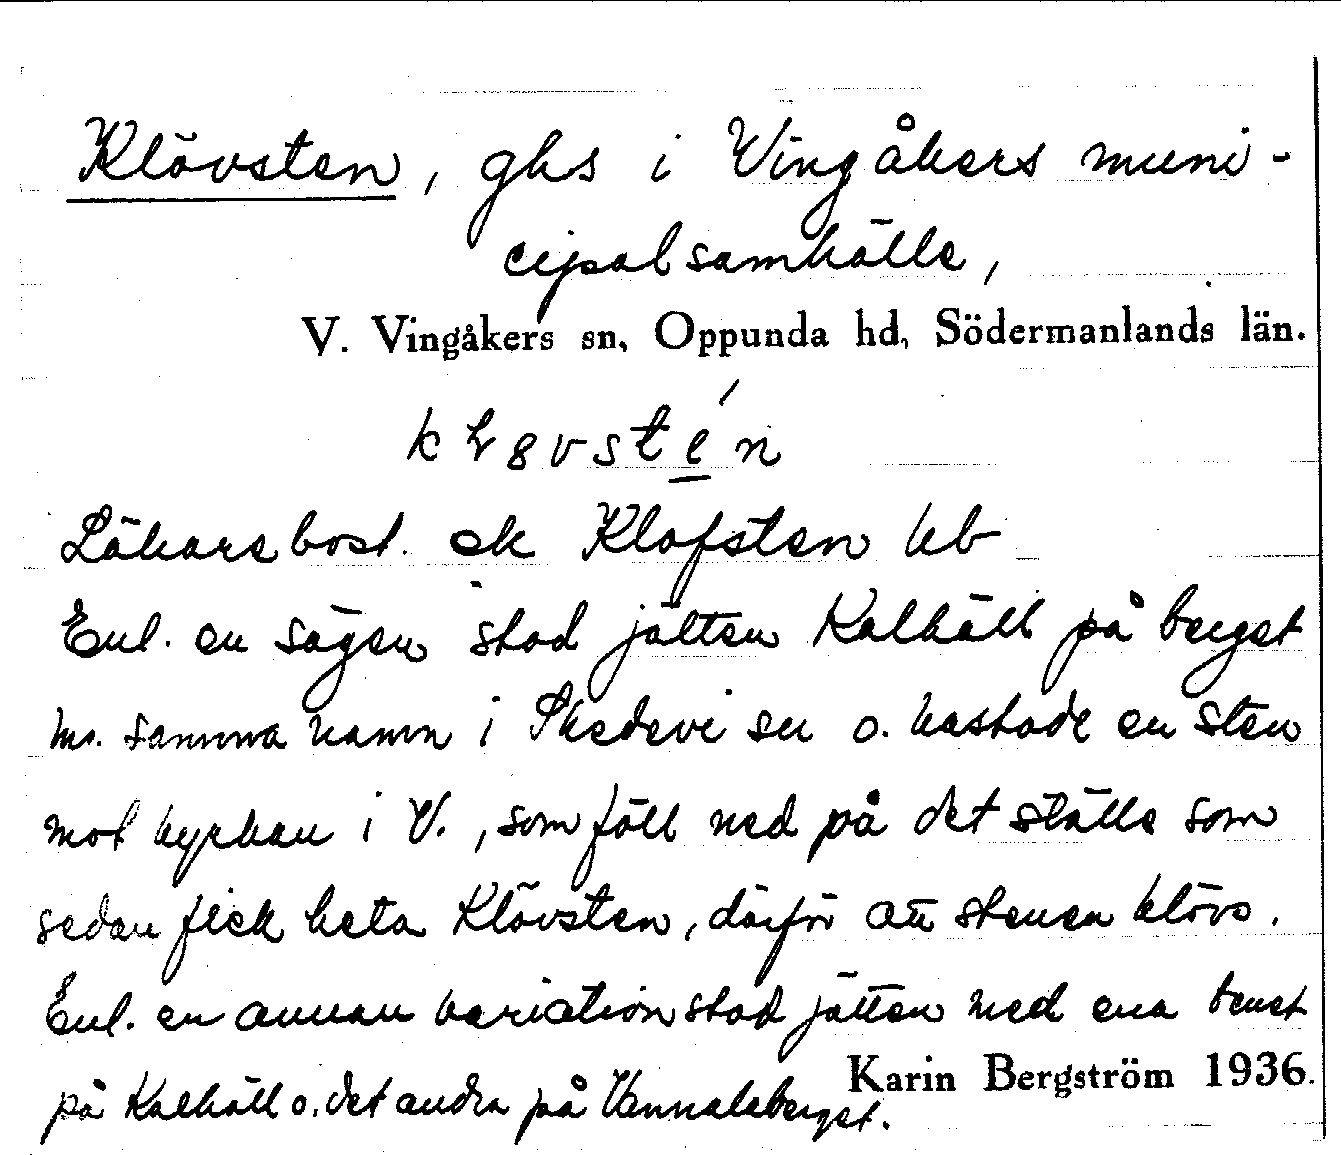 Klövsten, ghs i Vingåkers muni-
cipalsamhälle,
V. Vingåkers sn, Oppunda hd, Södermanlands län.
Läkarebost. ek Klofsten kb
Enl. en sägen stod jätten Kalhäll på berget
m. samma namn i Skedevi sn o. kastade en sten
mot kyrkan i V., som föll ned på det ställe som
sedan fick heta Klövsten, därför att stenen klövs.
Enl. en annan variation stod jätten med ena benet
på Kalhäll o. det andra på
Karin Bergström 1936.